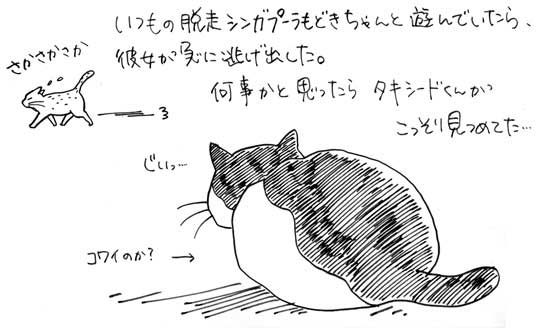 いつもの脱走シンガプーラもどきちゃんと遊んでいたら、
彼女が急に逃げ出した。
何事かと思ったら タキシードくんが
こっそり見つめてた…
さかさかさか
じいっ…
コワイのか? →